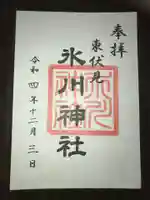 奉拝
東伏見
氷川神社
令和四年十二月三日